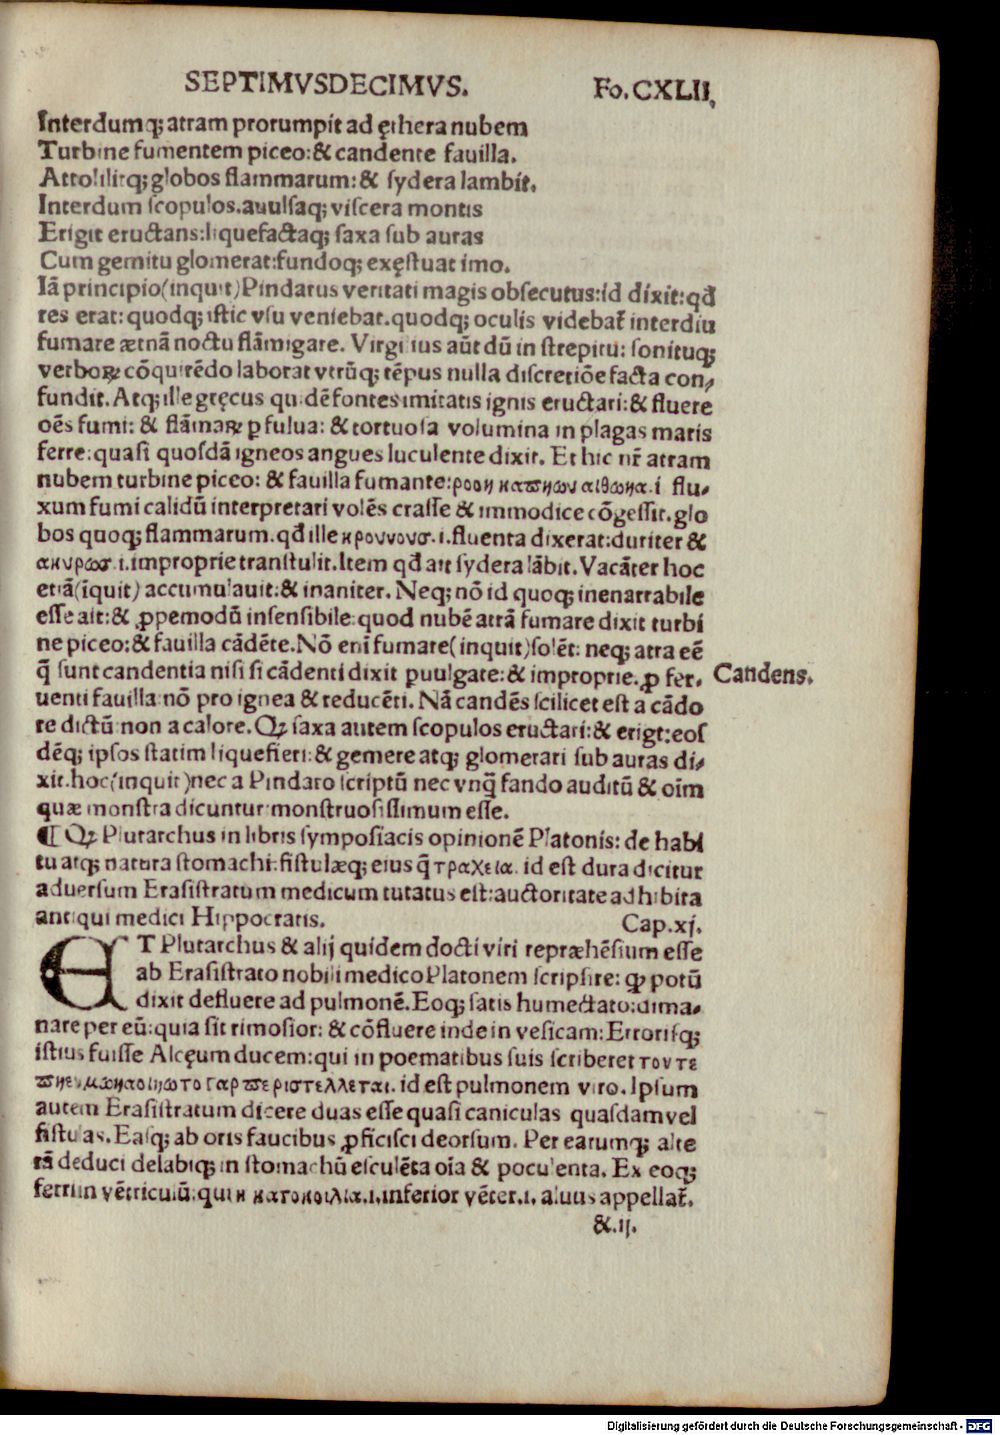 SEPTIMVSDECIMVS. Fo.CXLII,
Interdumq; atram prorumpit ad ęthera nubem
Turbine fumentem piceo:& candente fauilla.
Attollitq; globos flammarum:& sydera lambit.
Interdum scopulos.auulsaq; viscera montis
Erigit eructans:liquefactaq; saxa sub auras
Cum gemitu glomerat:fundoq; exęstuat imo.
Iā principio(inquit)Pindarus veritati magis obsecutus:id dixit:qđ
res erat:quodq; istic vsu veniebat.quodq; oculis videbat̃ interdiu
fumare ætnā noctu flāmigare. Virgilius aūt dū in strepitu: sonituq;
verboꝝ cōquirēdo laborat vtrūq; tēpus nulla discretiōe facta con,
fundit. Atq; ille gręcus quidē fontes imitatis ignis eructari:& fluere
oēs fumi: & flāmaꝝ ꝑ fulua: & tortuosa volumina in plagas maris
ferre:quasi quosdā igneos angues luculente dixit. Et hic nr̃ atram
nubem turbine piceo: & fauilla fumante:ροον καπνων αιθωνα.i flu,
xum fumi calidū interpretari volēs crasse & immodice cōgessit.glo
bos quoq; flammarum.qđ ille κρουνουσ.i.fluenta dixerat:duriter &
ακυρωσ.i.improprie transtulit.Item qđ ait sydera lābit. Vacāter hoc
etiā(īquit) accumulauit:& inaniter. Neq; nō id quoq; inenarrabile
esse ait:& ꝓpemodū insensibile:quod nubē atrā fumare dixit turbi
ne piceo:& fauilla cādēte.Nō eni fumare(inquit)solēt: neq; atra eē
q̄ sunt candentia nisi si cādenti dixit puulgate:& improprie.ꝓ fer,
uenti fauilla nō pro ignea & reducēti. Nā candēs scilicet est a cādo
re dictū non a calore. Qꝫ saxa autem scopulos eructari:& erigi:eos
dēq; ipsos statim liquefieri:& gemere atq; glomerari sub auras di,
xit.hoc(inquit)nec a Pindaro scriptū nec vnq̄ fando auditū & oīm
quæ monstra dicuntur monstruosissimum esse.
Candens.
¶ Qꝫ Plutarchus in libris symposiacis opinionē Platonis: de habi
tu atq; natura stomachi:fistulæq; eius q̄ τραχεια. id est dura dicitur
aduersum Erasistratum medicum tutatus est:auctoritate adhibita
antiqui medici Hippocratis. Cap.xj.
ET Plutarchus & alij quidem docti viri repræhēsium esse
ab Erasistrato nobili medico Platonem scripsire: ꝙ potū
dixit defluere ad pulmonē.Eoq; satis humectato:dima,
nare per eū:quia sit rimosior: & cōfluere inde in vesicam:Errorisq;
istius fuisse Alcęum ducem:qui in poematibus suis scriberet τουτε
id est pulmonem viro. Ipsum
autem Erasistratum dicere duas esse quasi caniculas quasdam vel
fistulas. Easq; ab oris faucibus ꝓficisci deorsum. Per earumq; alte
rā deduci delabiq; in stomachū esculēta oīa & poculenta. Ex eoq;
ferri in vētriculū:qui κ κατοκοιλια.i.inferior vēter.i. aluus appellat̃.
&.ij.
Digitalisierung gefördert durch die Deutsche Forschungsgemeinschaft - DFG